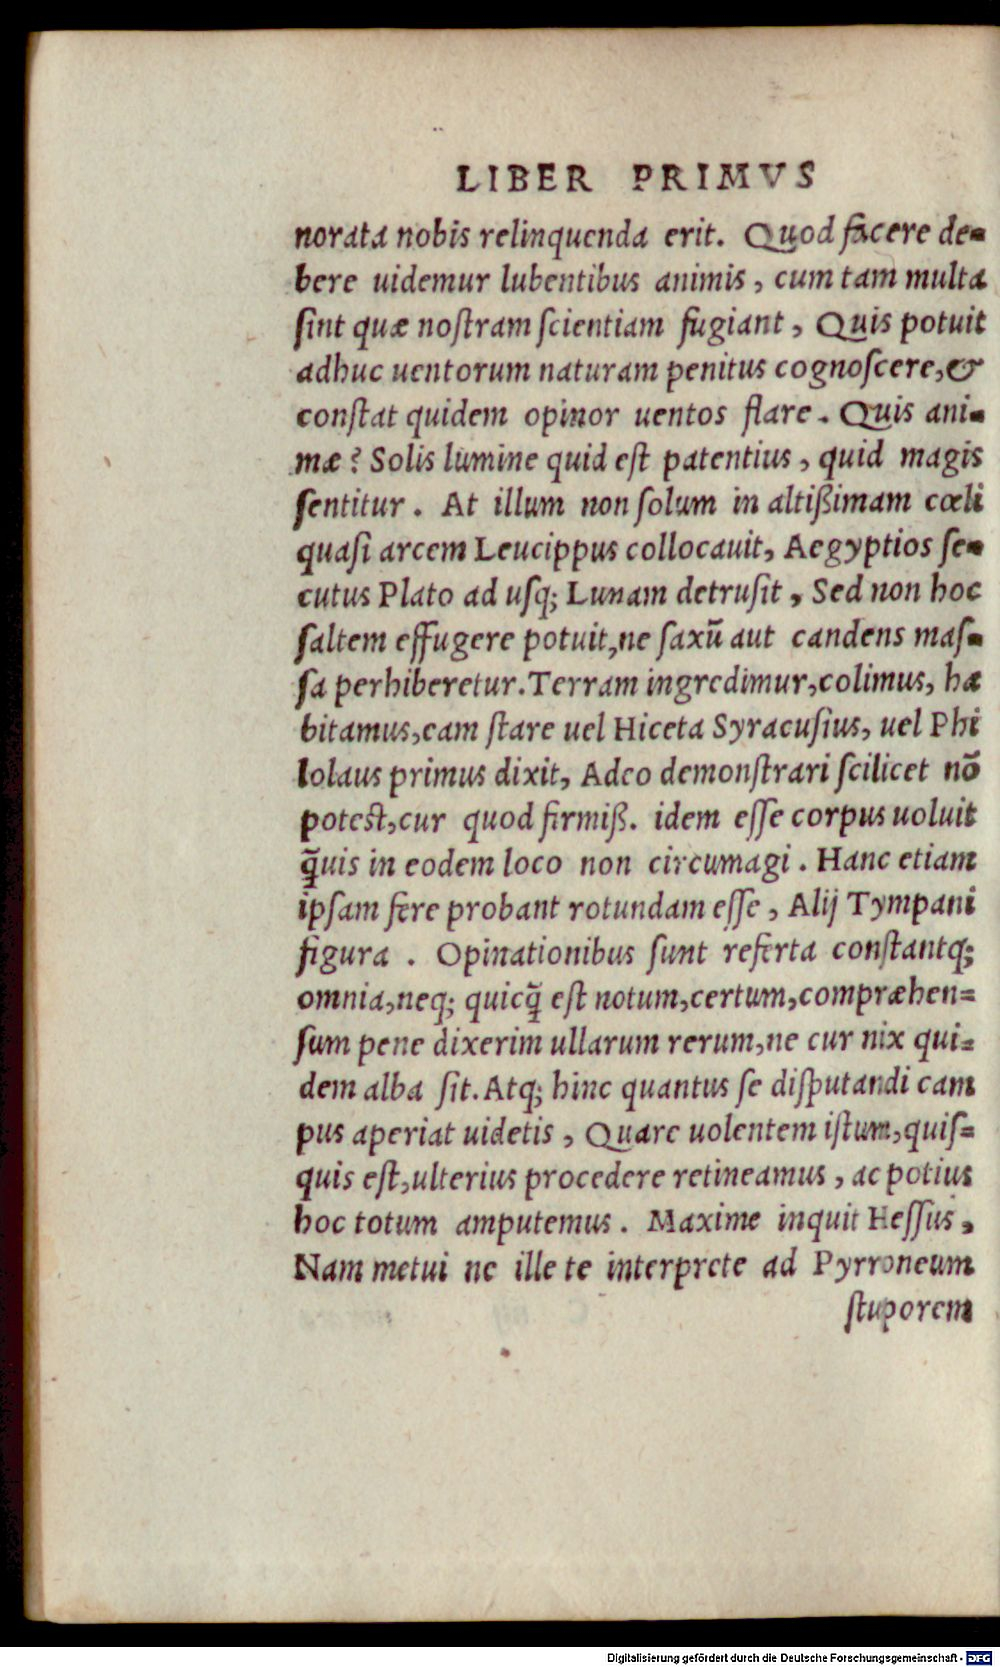 LIBER PRIMVS
norata nobis relinquenda erit. Quod facere de-
bere uidemur lubentibus animis, cum tam multa
ſint quæ noſtram ſcientiam fugiant, Quis potuit
adhuc uentorum naturam penitus cognoſcere, &
conſtat quidem opinor uentos flare. Quis ani-
mæ? Solis lumine quid eſt patentius, quid magis
ſentitur. At illum non ſolum in altißimam cœli
quaſi arcem Leucippus collocauit, Aegyptios ſe-
cutus Plato ad uſq; Lunam detruſit, Sed non hoc
ſaltem effugere potuit, ne ſaxū aut candens maſ-
ſa perhiberetur. Terram ingredimur, colimus, hæ
bitamus, eam ſtare uel Hiceta Syracuſius, uel Phi
lolaus primus dixit, Adeo demonſtrari ſcilicet nō
poteſt, cur quod firmiß. idem eſſe corpus uoluit
q̃uis in eodem loco non circumagi. Hanc etiam
ipſam fere probant rotundam eſſe, Alij Tympani
figura. Opinationibus ſunt referta conſtantq;
omnia, neq; quicq̃ eſt notum, certum, compræhen=
ſum pene dixerim ullarum rerum, ne cur nix qui=
dem alba ſit. Atq; hinc quantus ſe diſputandi cam
pus aperiat uidetis, Quare uolentem iſtum, quiſ=
quis eſt, ulterius procedere retineamus, ac potius
hoc totum amputemus. Maxime inquit Heſſus,
Nam metui ne ille te interprete ad Pyrroneum
ſtuporem
Digitalisierung gefördert durch die Deutsche Forschungsgemeinschaft - DFG